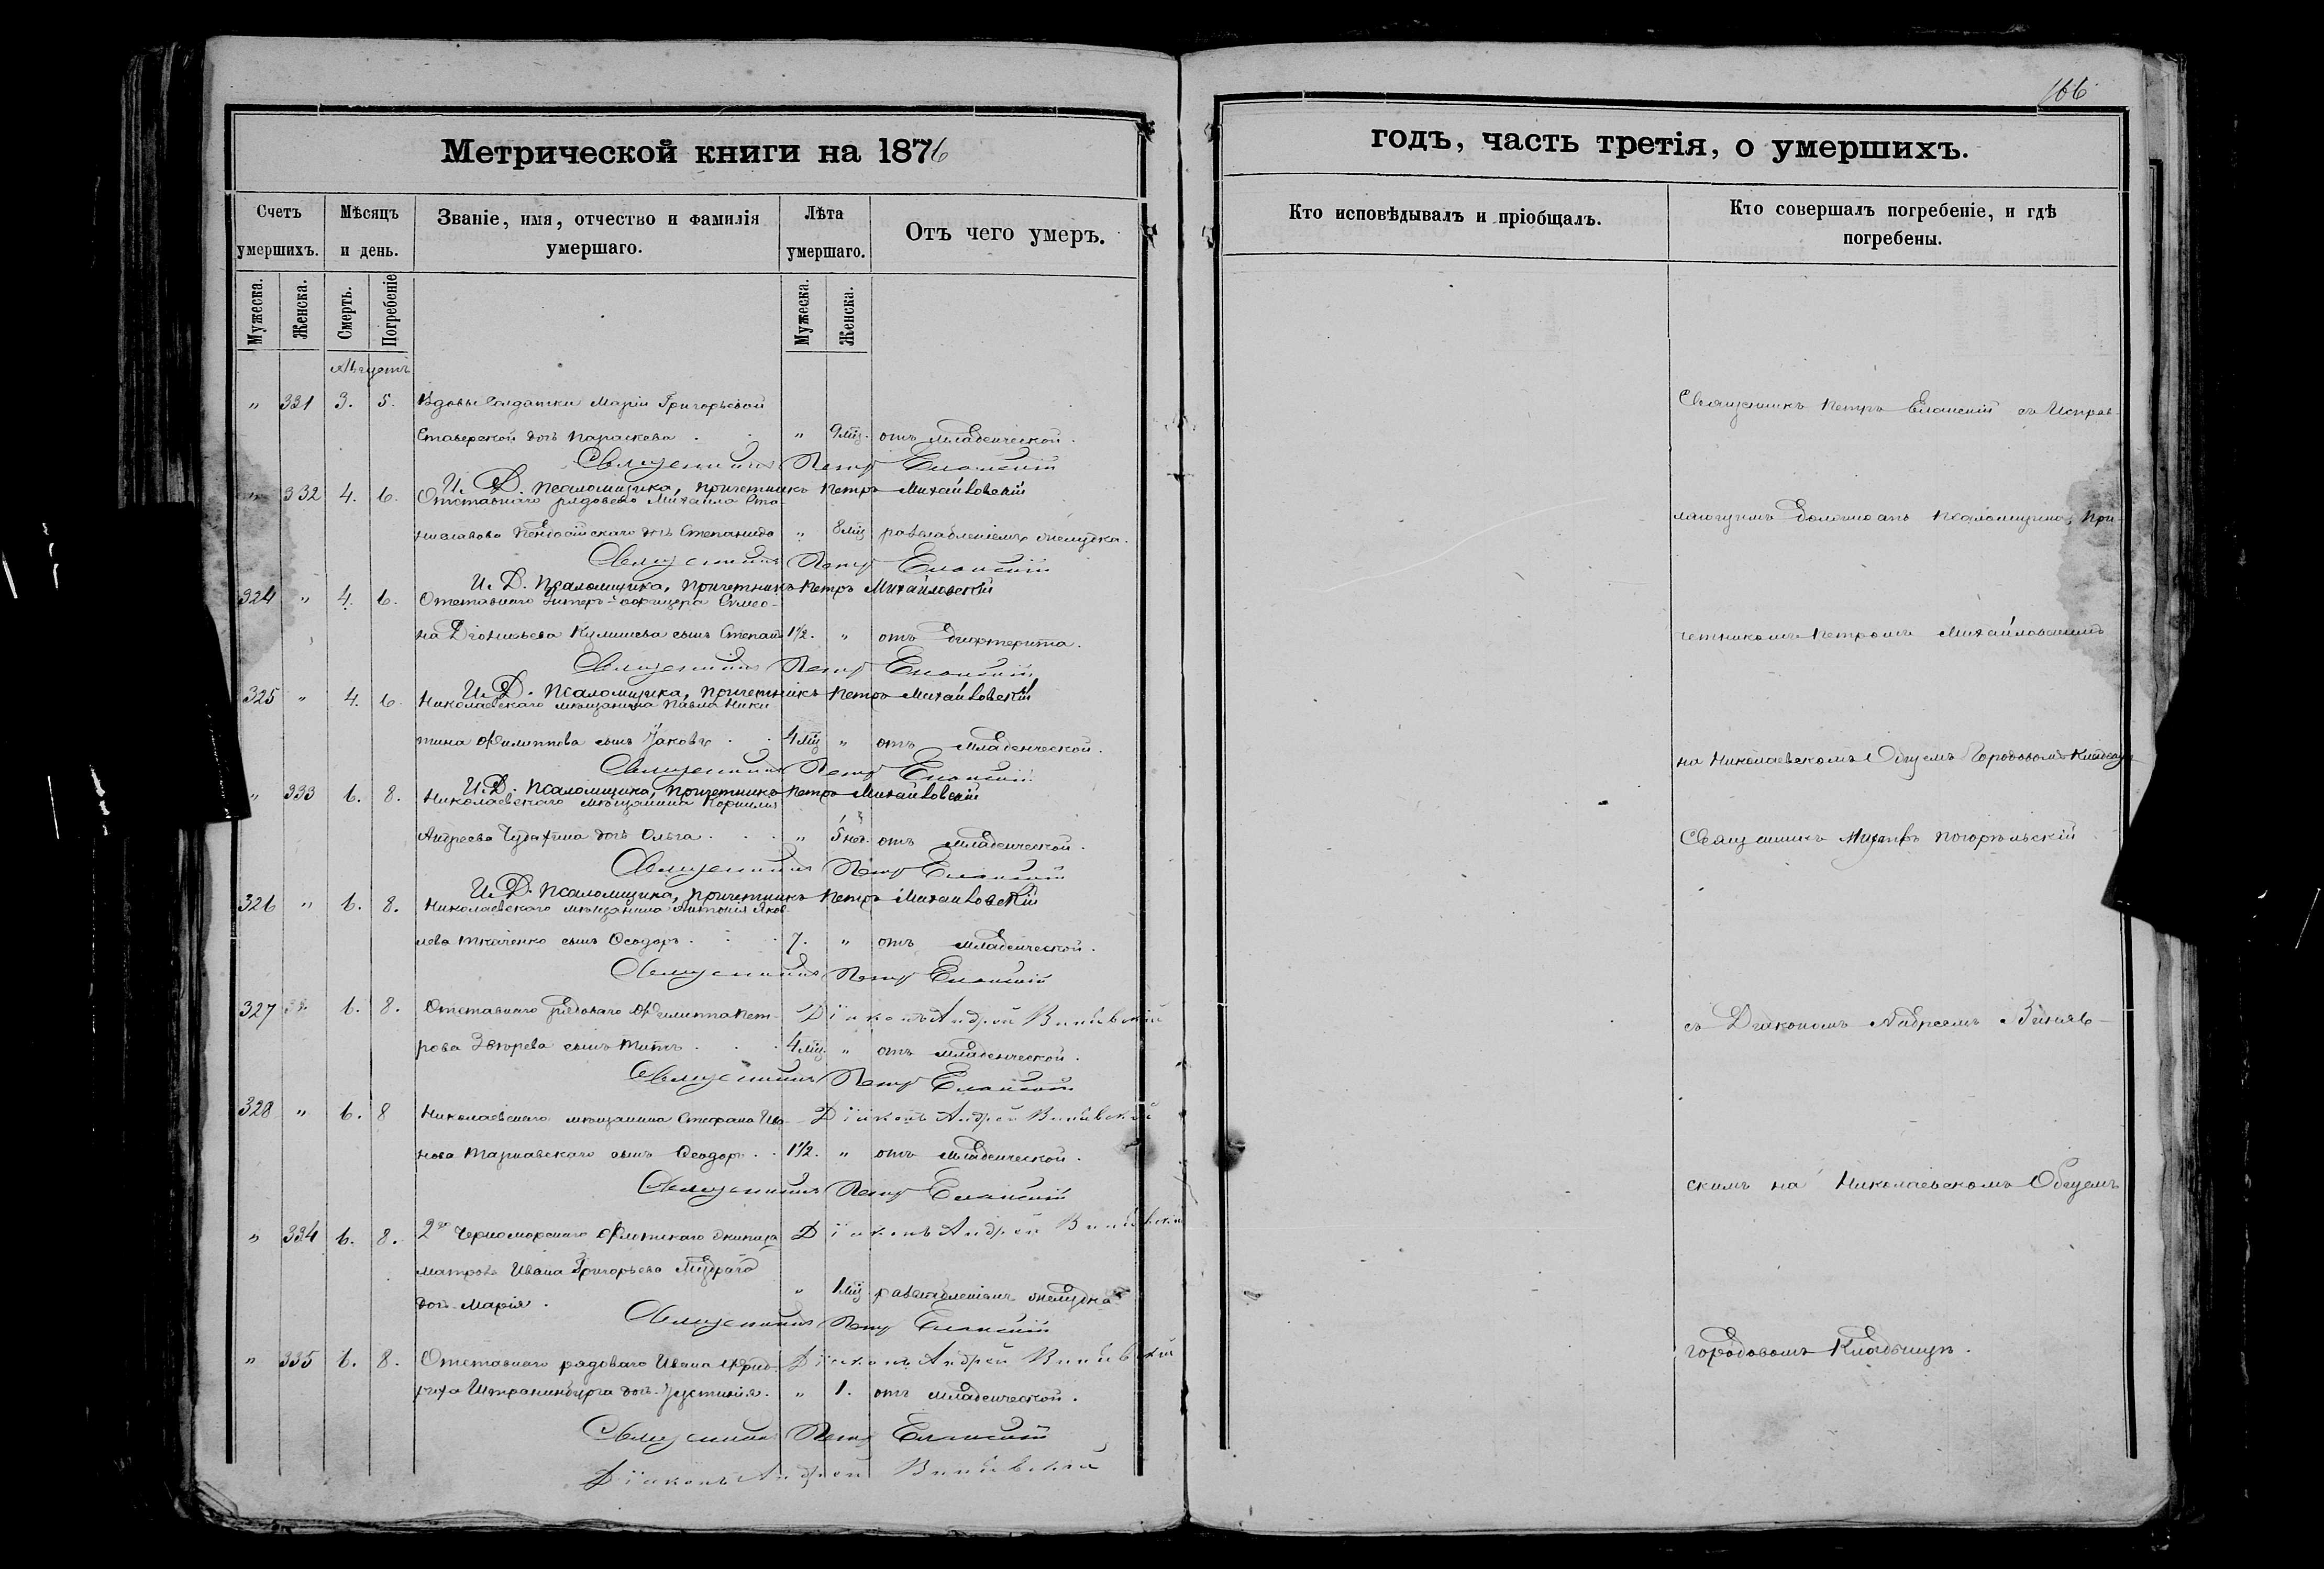 166
Метрической книги на 1876
годъ, часть третія, о умершихъ.
Счетъ умершихъ.
Мѣсяцъ и день.
Званіе, имя, отчество и фамилія умершаго.
Лѣта умершаго.
Отъ чего умеръ.
Кто исповѣдывалъ и пріобщалъ.
Кто совершалъ погребеніе, и гдѣ погребены.
Мужеска. Женска. Смерть. Погребеніе Мужеска. Женска.
Августъ
" 331 3. 5. Вдовы Солдатки Маріи Григорьевой
Ставерской дочь Параскева . . " 9 мц. отъ младенческой.
Священникъ Петръ Еланскій
И. Д. Псаломщика, Причетникъ Петръ Михайловскій
" 332 4. 6. Отставнаго рядоваго Михаила Ста-
ниславова дочь Степанида " 8 мц разслабленіемъ желудка.
Священникъ Петръ Еланскій
И. Д. Псаломщика, Причетникъ Петръ Михайловскій
324 " 4. 6. Отставнаго Унтеръ-офицера Симео-
на Діонисьева сынъ Стефанъ 1½. " отъ дифтерита.
Священникъ Петръ Еланскій
И. Д. Псаломщика, Причетникъ Петръ Михайловскій
325 " 4. 6. Николаевскаго мѣщанина Павла Ники-
тина Филиппова сынъ Іаковъ . . 4 мц " отъ младенческой.
Священникъ Петръ Еланскій
И. Д. Псаломщика, Причетникъ Петръ Михайловскій
" 333 6. 8. Николаевскаго мѣщанина Корнилія
Андреева дочь Ольга . . . " 5 нед. отъ младенческой.
Священникъ Петръ Еланскій
И. Д. Псаломщика, Причетникъ Петръ Михайловскій
326 " 6. 8. Николаевскаго мѣщанина Антонія Яков-
лева Ткаченко сынъ Ѳеодоръ . . . 7. " отъ младенческой.
Священникъ Петръ Еланскій
327 6. 8. Отставнаго рядоваго Филиппа Пет- Діаконъ Андрей
рова Звѣрева сынъ Титъ . . . 4 мц. " отъ младенческой.
Священникъ Петръ Еланскій
328 " 6. 8 Николаевскаго мѣщанина Стефана Ива- Діаконъ Андрей
нова Тарнавскаго сынъ Ѳеодоръ . . 1½. " отъ младенческой.
Священникъ Петръ Еланскій
" 334 6. 8. 2го Черноморскаго Флотскаго экипажа Діаконъ Андрей
матроса Ивана Григорьева
дочь Марія . " 1 мц разслабленіемъ желудка
Священникъ Петръ Еланскій
" 335 6. 8. Отставнаго рядоваго Ивана Фрид- Діаконъ Андрей
риха дочь Іустинія . " 1. отъ младенческой.
Священникъ Петръ Еланскій
Діаконъ Андрей
Священникъ Петръ Еланскій съ Исправ-
ляющимъ должность Псаломщика, При-
четникомъ Петромъ Михайловскимъ
на Николаевскомъ Общемъ Городовомъ
Священникъ Погорѣльскій
съ Діакономъ Андреемъ
скимъ на Николаевскомъ Общемъ
городовомъ Кладбищѣ.